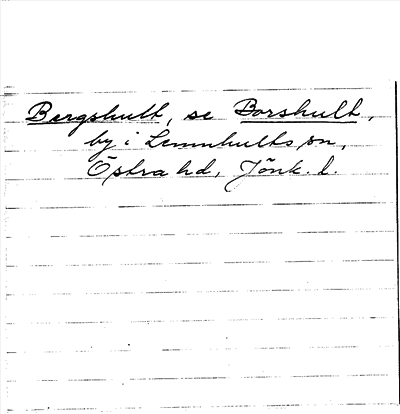 Bergshult, se Borshult,
by i Lemnhults sn,
Östra hd, Jönk. l.